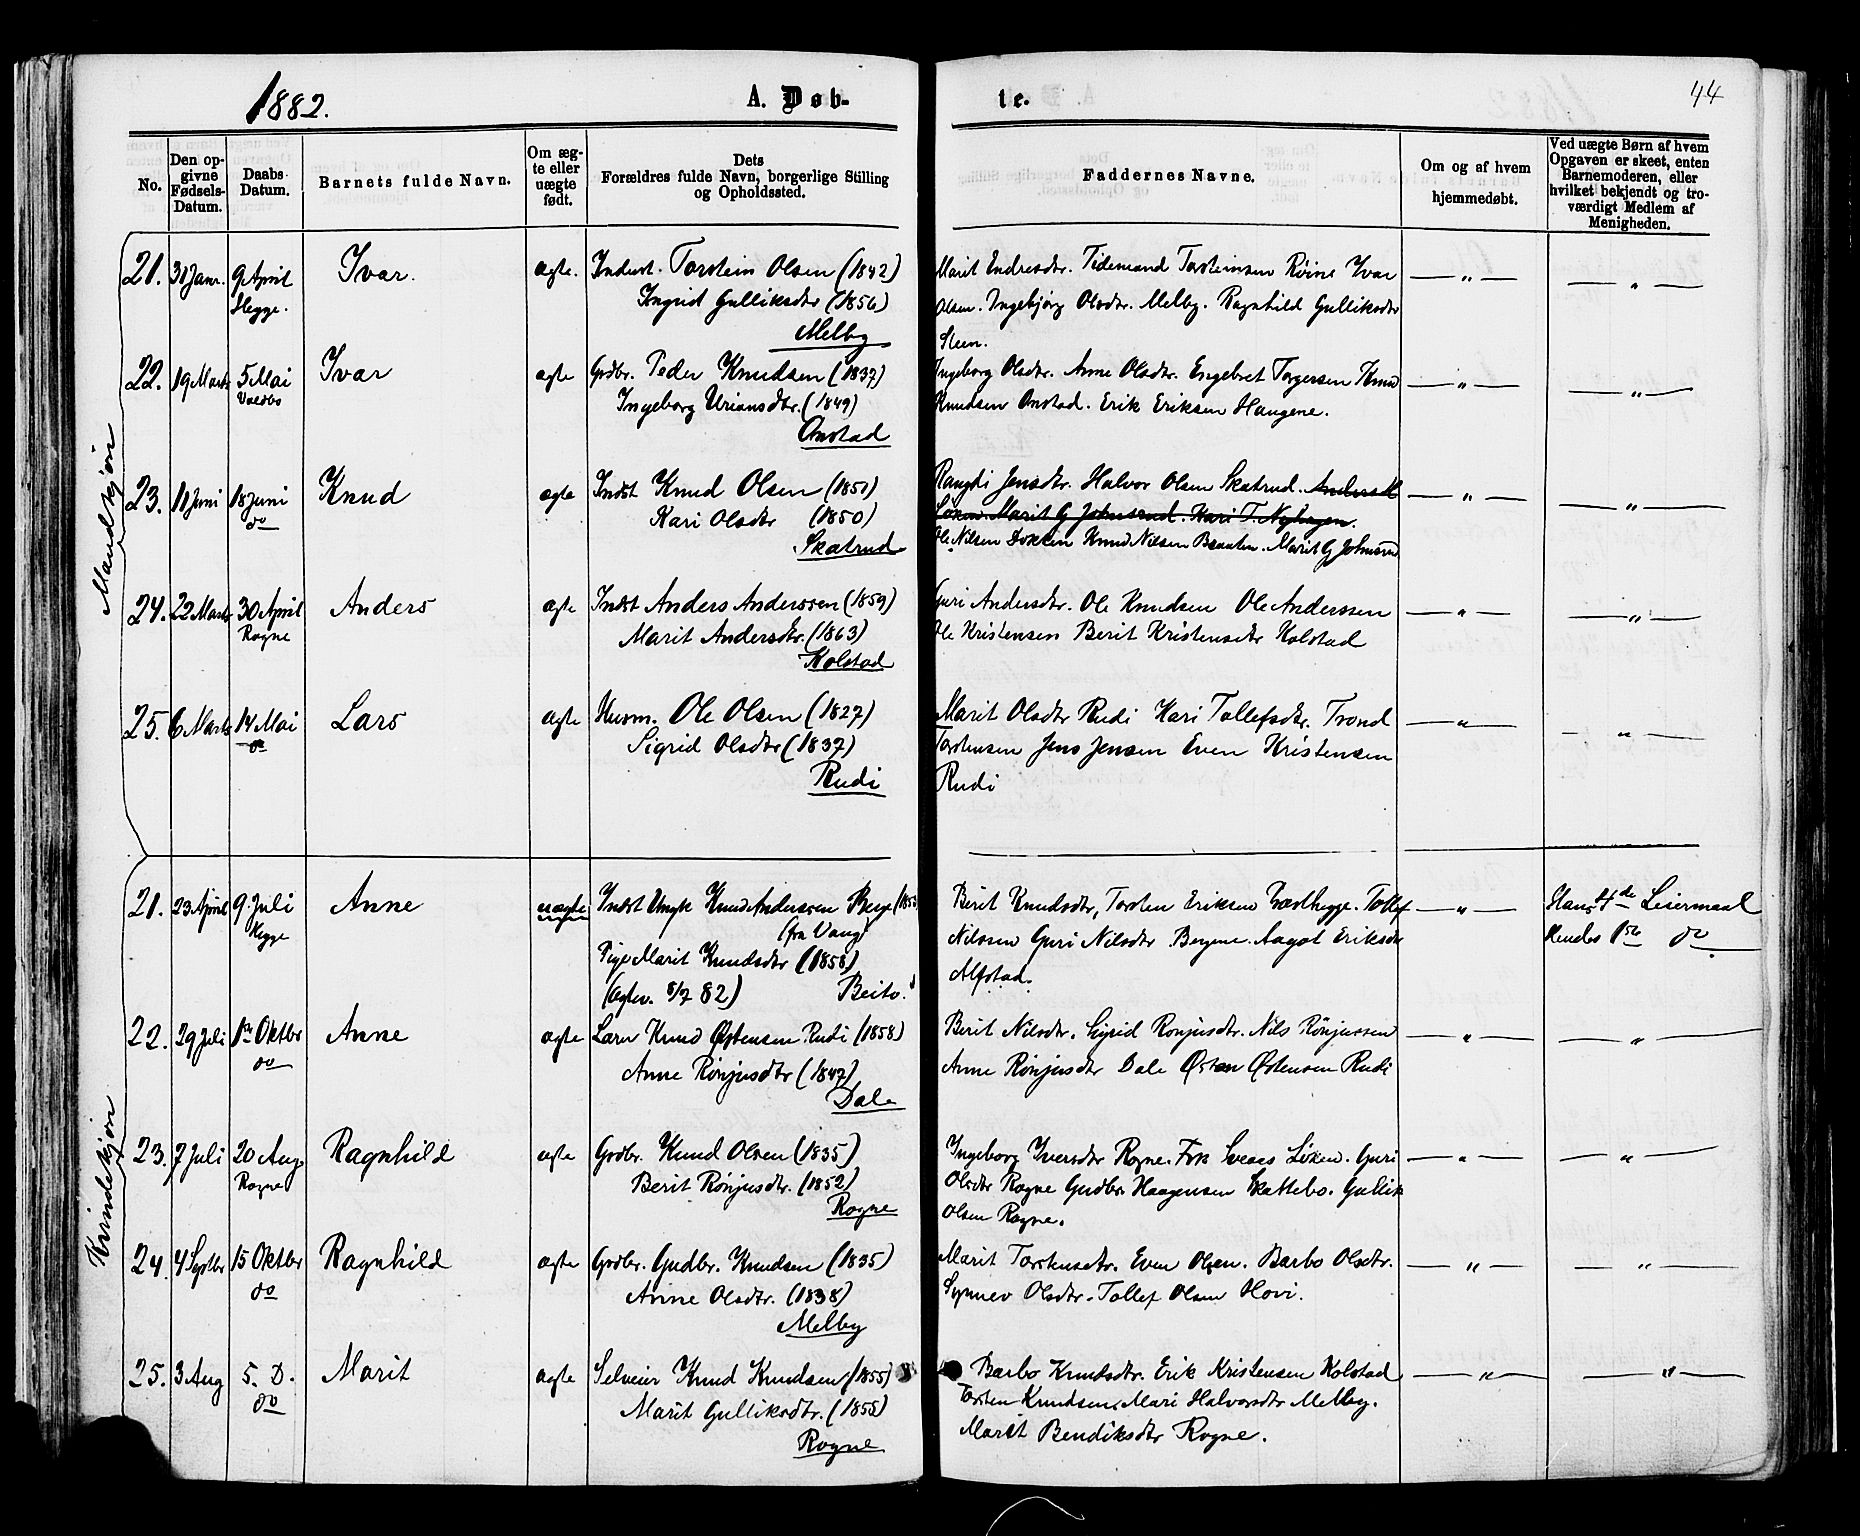 1882.
A. Døb-
te.
44
No.
Den op-
givne
Fødsels-
Datum.
Daabs-
Datum.
Barnets fulde Navn.
Om æg-
te eller
uægte
født.
Dets
Forældres fulde Navn, borgerlige Stilling
og Opholdssted.
Faddernes Navne.
Om og af hvem
hjemmedøbt.
Ved uægte Børn af hvem
Opgaven er skeet, enten
Barnemoderen, eller
hvilket bekjendt og tro-
værdigt Medlem af
Menigheden.
Mandskjøn
21. 31 Janr. 9 April Ivar. ægte. Inderst. Torstein Olsen (1842) Marit Endresdtr. Tidemand Torsteinsen Røine Ivar — " —
Hegge. Ingrid Gulliksdtr (1856) Olsen. Ingebjørg Olsdtr. Melby. Ragnhild Gulliksdtr — " —
Melby Steen.
22. 19 Marts 5 Mai Ivar ægte Grdbr. Peder Knudsen (1837) Ingeborg Olsdtr. Anne Olsdtr. Engebret Torgersen Knud — " —
Voldbo Ingeborg Uriansdtr. (1849) Knudsen Onstad. Erik Eriksen Haugene. — " —
Onstad
23. 11 Juni 18 Juni Knud ægte Indst Knud Olsen (1851) Rangdi Jensdtr. Halvor Olsen Skatrud. — " —
do Kari Olsdtr (1850) Marit G Johnsrud. Kari T. Nyhagen. — " —
Skatrud Ole Nilsen Dokken Knud Nilsen Braaten. Marit G Johnsrud
24. 22 Marts 30 April Anders ægte Indst Anders Anderssen (1859) Guri Andersdtr. Ole Knudsen Ole Anderssen — " —
Rogne Marit Andersdtr. (1863) Ole Kristensen Berit Kristensdtr Kolstad — " —
Kolstad
25. 6 Marts 14 Mai Lars ægte Husm. Ole Olsen (1827) Marit Olsdtr Rudi Kari Tollefsdtr. Trond — " —
do Sigrid Olsdtr (1837) Torstensen Jens Jensen Even Kristensen — " —
Rudi Rudi
Kvindekjøn
21. 23 April 9 Juli Anne uægte Indst Ungk Knud Anderssen Berge Berit Knudsdtr, Torsten Eriksen Tollef — " — Hans 4de Leiermaal
Hegge (fra Vang) Nilssen Guri Nilsdtr Bergene. Aagot Eriksdtr Hendes 1ste do
Pige Marit Knudsdtr (1858) Alfstad.
(Ægtev. 8/7 82) Beito.
22. 29 Juli 1ste Oktbr Anne ægte Knud Østensen Rudi (1858) Berit Nilsdtr. Sigrid Ronjusdtr. Nils Rønjussen — " — — " —
do Anne Rønjusdtr (1847) Anne Rønjusdtr Dale Østen Østensen Rudi
Dale
23. 7 Juli 20 Aug Ragnhild ægte Grdbr. Knud Olsen (1835) Ingeborg Iversdtr Rogne. Frk Løken. Guri — " — — " —
Rogne Berit Rønjusdtr. (1852) Olsdtr Rogne Gudbr. Haagensen Skattebo. Gullik
Rogne Olsen Rogne.
24. 4 Septbr 15 Oktbr Ragnhild ægte Grdbr. Gudbr. Knudsen (1835) Marit Torstensdtr. Even Olsen. Barbo Olsdtr. — " — — " —
do Anne Olsdtr. (1838) Synnev Olsdtr. Tollef Olsen Hovi.
Melby
25. 3 Aug 5. D. Marit ægte Selveier Knud Knudsen (1855) Barbo Knudsdtr. Erik Kristensen Kolstad — " — — " —
do Marit Gulliksdtr. (1855) Torsten Knudsen, Mari Halvorsdtr Melby.
Rogne Marit Bendiksdtr Rogne.